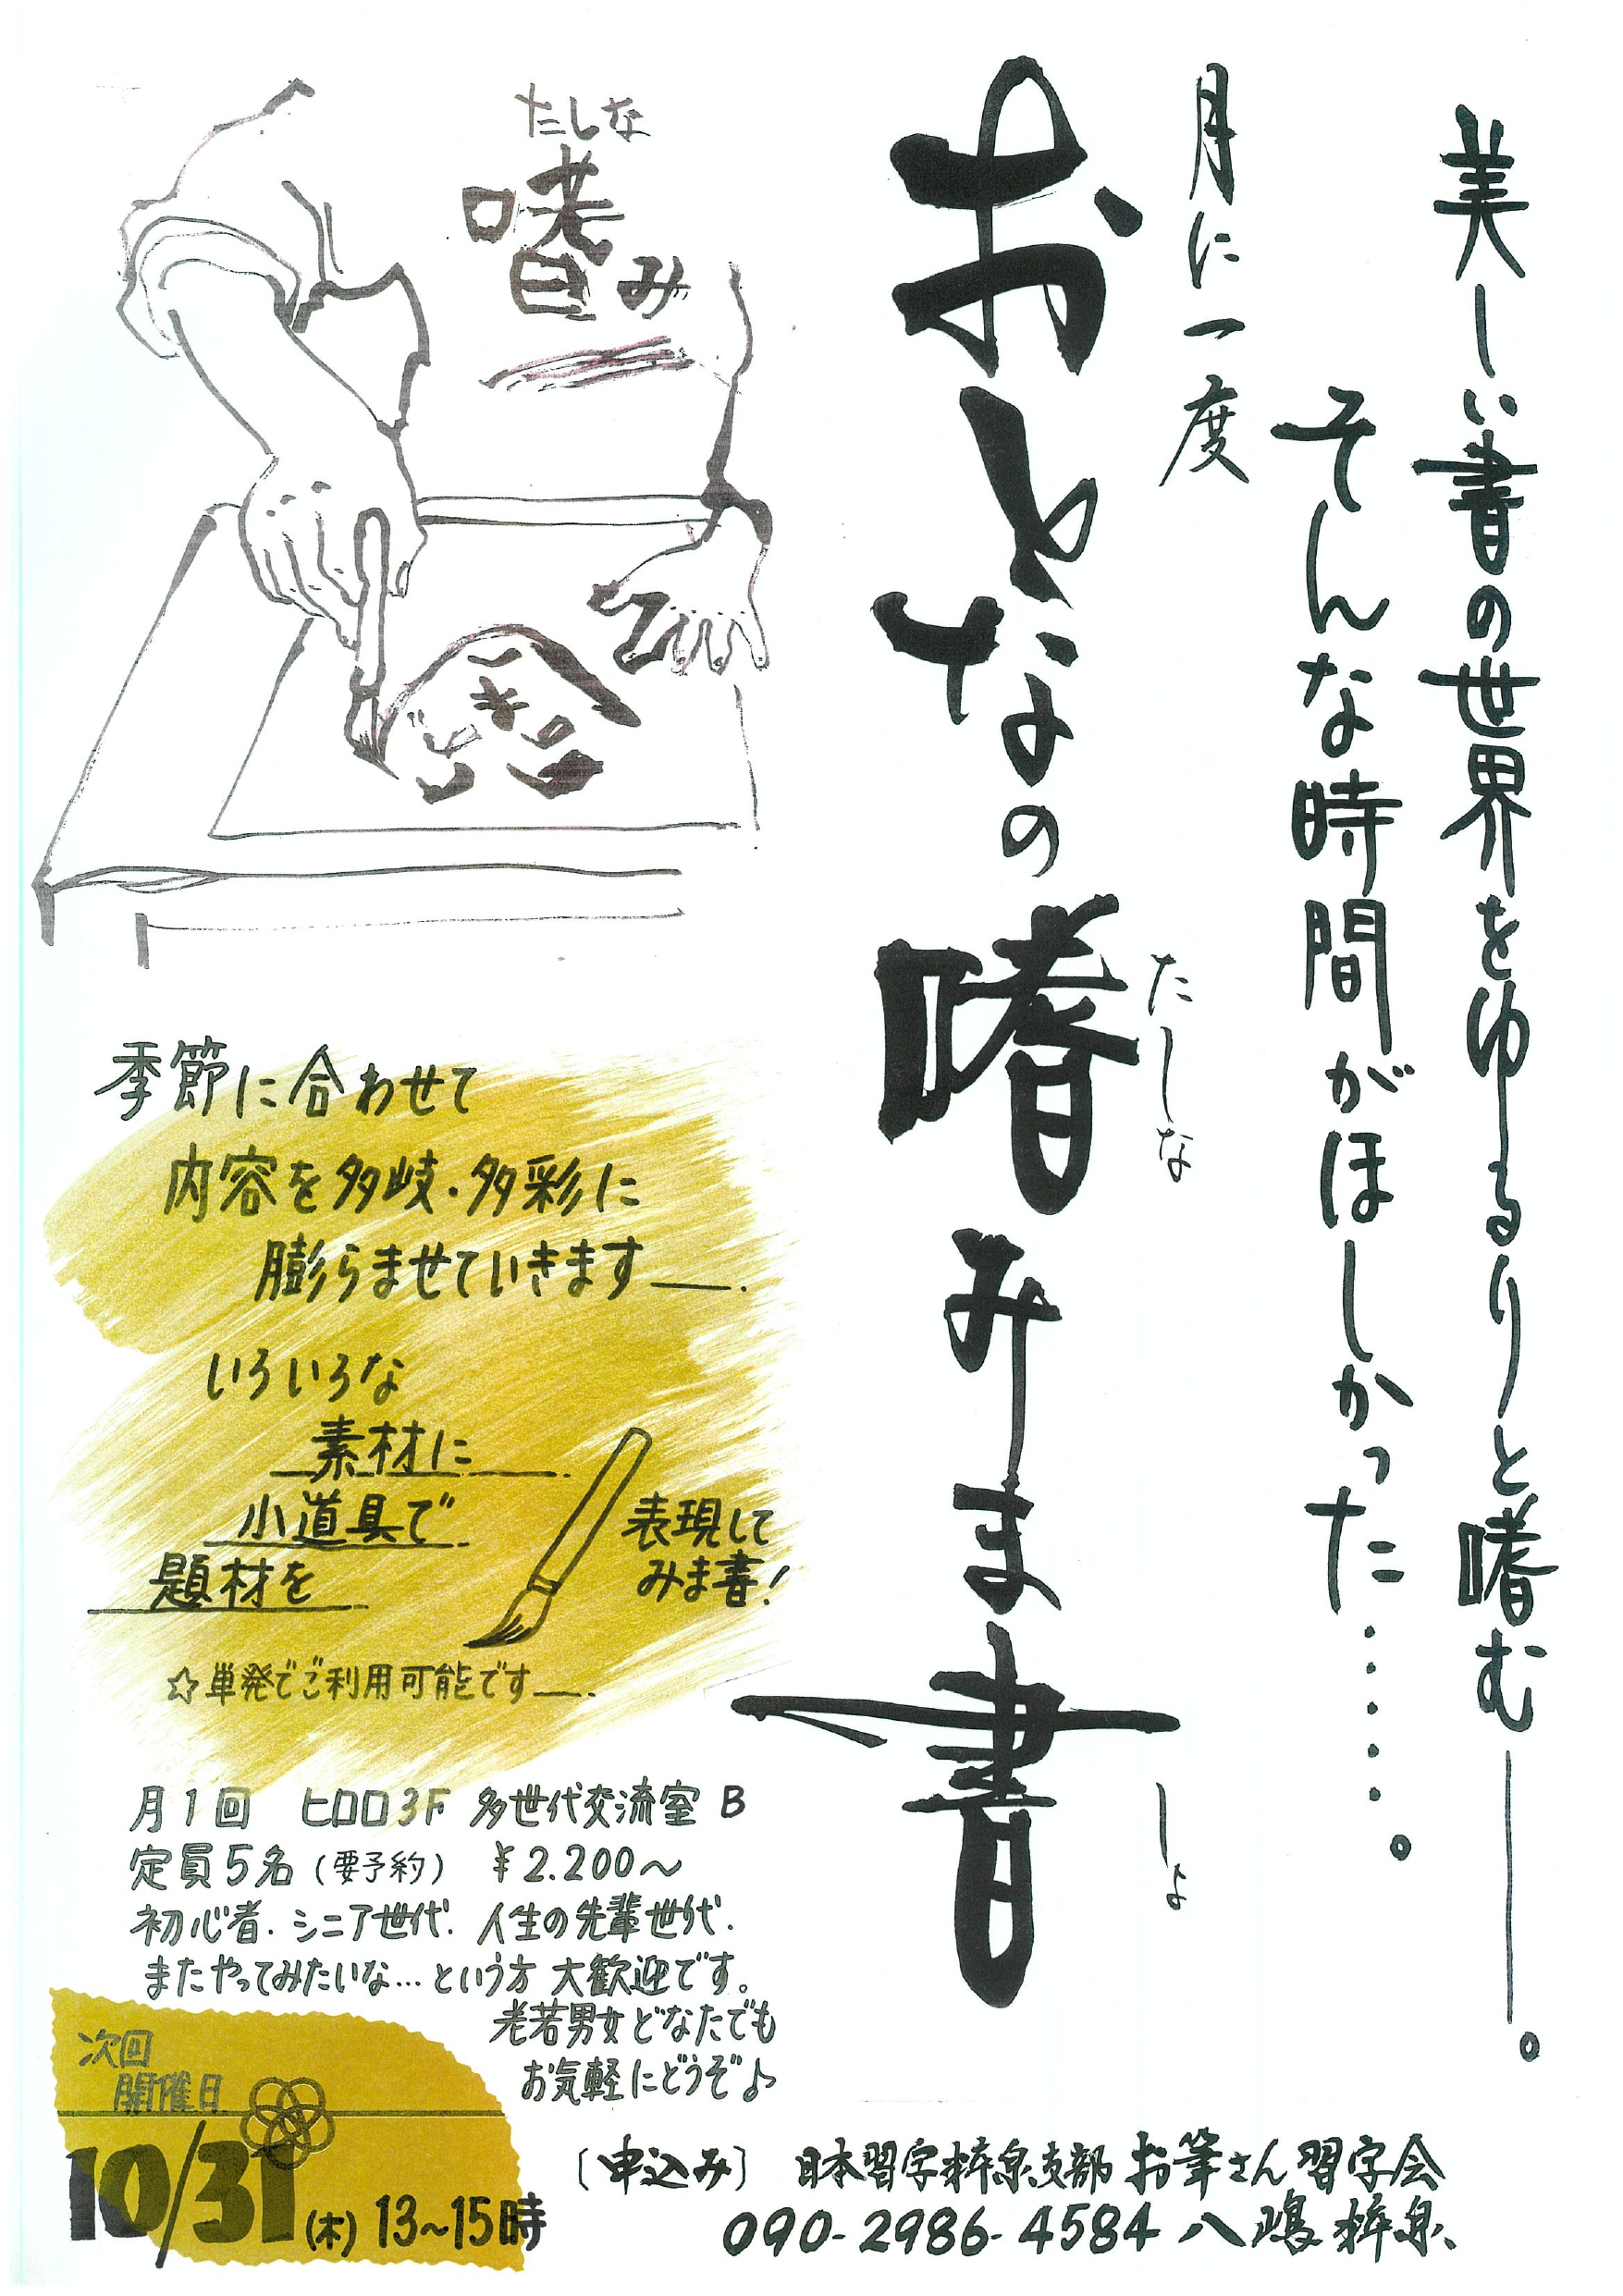 美しい書の世界をゆるりと嗜む―。
そんな時間がほしかった……。
月に一度
おとなの嗜みま書
たしな
しょ
たしな
嗜み
季節に合わせて
内容を多岐・多彩に
膨らませていきます―.
いろいろな
素材に
小道具で
題材を
表現して
みま書!
☆単発でご利用可能です―.
月1回 ヒロロ3F 多世代交流室 B
定員5名(要予約) ¥2.200〜
初心者.シニア世代.人生の先輩世代.
またやってみたいな…という方 大歓迎です。
老若男女どなたでも
お気軽にどうぞ♪
次回
開催日
10/31(木)13〜15時
〔申込み〕 日本習字梓泉支部 お筆さん習字会
090-2986-4584 八嶋梓泉